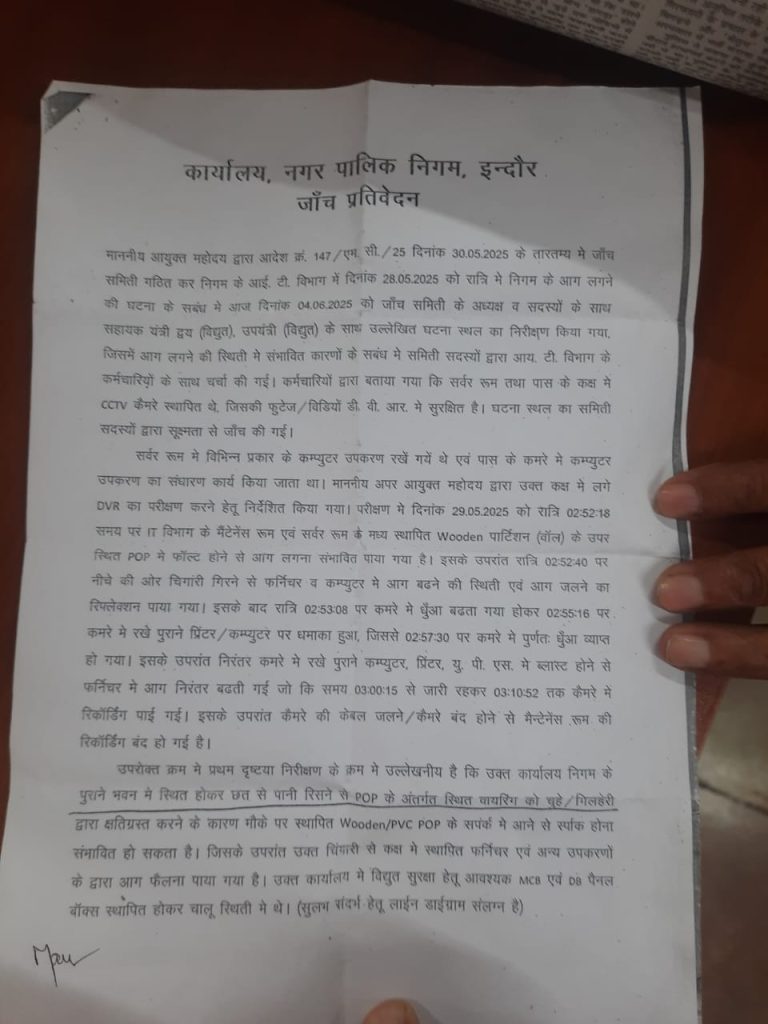 कार्यालय, नगर पालिक निगम, इन्दौर
जाँच प्रतिवेदन
माननीय आयुक्त महोदय द्वारा आदेश क्रं. 147/एम. सी./25 दिनांक 30.05.2025 के तारतम्य मे जाँच
समिती गठित कर निगम के आई. टी. विभाग में दिनांक 28.05.2025 को रात्रि मे निगम के आग लगने
की घटना के सबंध मे आज दिनांक 04.06.2025 को जाँच समिती के अध्यक्ष व सदस्यों के साथ
सहायक यंत्री द्वय (विद्युत), उपयंत्री (विद्युत) के साथ उल्लेखित घटना स्थल का निरीक्षण किया गया,
जिसमें आग लगने की स्थिती मे संभावित कारणों के सबंध मे समिती सदस्यों द्वारा आय. टी. विभाग के
कर्मचारियों के साथ चर्चा की गई। कर्मचारियों द्वारा बताया गया कि सर्वर रूम तथा पास के कक्ष मे
CCTV कैमरे स्थापित थे, जिसकी फुटेज/विडियों डी. वी. आर. मे सुरक्षित है। घटना स्थल का समिती
सदस्यों द्वारा सूक्ष्मता से जाँच की गई।
सर्वर रूम मे विभिन्न प्रकार के कम्प्युटर उपकरण रखें गयें थे एवं पास के कमरे मे कम्प्युटर
उपकरण का संधारण कार्य किया जाता था। माननीय अपर आयुक्त महोदय द्वारा उक्त कक्ष मे लगे
DVR का परीक्षण करने हेतू निर्देशित किया गया। परीक्षण मे दिनांक 29.05.2025 को रात्रि 02:52:18
समय पर IT विभाग के मैंटेनेंस रूम एवं सर्वर रूम के मध्य स्थापित Wooden पार्टिशन (वॉल) के उपर
स्थित POP मे फॉल्ट होने से आग लगना संभावित पाया गया है। इसके उपरांत रात्रि 02:52:40 पर
नीचे की ओर चिगांरी गिरने से फर्निचर व कम्प्युटर मे आग बढने की स्थिती एवं आग जलने का
रिफ्लेक्शन पाया गया। इसके बाद रात्रि 02:53:08 पर कमरे मे धुँआ बढता गया होकर 02:55:16 पर
कमरे मे रखे पुराने प्रिंटर/कम्प्युटर पर धमाका हुआ, जिससे 02:57:30 पर कमरे मे पुर्णतः धुँआ व्याप्त
हो गया। इसके उपरांत निरंतर कमरे मे रखे पुराने कम्प्युटर, प्रिंटर, यु. पी. एस. मे ब्लास्ट होने से
फर्निचर मे आग निरंतर बढती गई जो कि समय 03:00:15 से जारी रहकर 03:10:52 तक कैमरे में
रिकॉर्डिंग पाई गई। इसके उपरांत कैमरे की केबल जलने/कैमरे बंद होने से मैन्टेनेंस रूम की
रिकॉर्डिंग बंद हो गई है।
उपरोक्त क्रम मे प्रथम दृष्टया निरीक्षण के क्रम मे उल्लेखनीय है कि उक्त कार्यालय निगम के
पुराने भवन मे स्थित होकर छत से पानी रिसाने से POP के अंतर्गत स्थित वायरिंग को चुहे/गिलहेरी
द्वारा क्षतिग्रस्त करने के कारण मौके पर स्थापित Wooden/PVC POP के सपंर्क मे आने से स्पॉक होना
संभावित हो सकता है। जिसके उपरांत उक्त चिंगारी से कक्ष मे स्थापित फर्निचर एवं अन्य उपकरणों
के द्वारा आग फैलना पाया गया है। उक्त कार्यालय मे विद्युत सुरक्षा हेतू आवश्यक MCB एवं DB पैनल
बॉक्स स्थापित होकर चालू स्थिती मे थे। (सुलभ संदर्भ हेतू लाईन डाईग्राम संलग्न है)